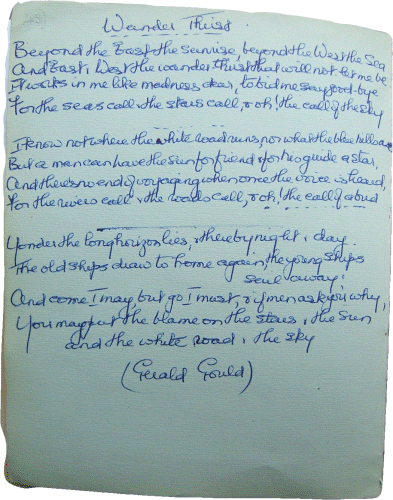 Wander Thirst
Beyond the East the sunrise, beyond the West the Sea
And East & West the wander thirst that will not let me be
It works in me like madness dear, to bid me say good-bye
For the seas call & the stars call, & oh! the call of the sky
I know not where the white road runs, nor what the blue hills are
But a man can have the sun for friend & for his guide a star
And there's no end of voyaging when once the voice is heard,
For the rivers call & the roads call, & oh! the call of a bird
Yonder the long horizon lies, & there by night & day.
The old ships draw to home again, the young ships
sail away;
And come I may, but go I must, & if men ask you why,
You may put the blame on the stars & the sun
and the white road & the sky
(Gerald Gould)